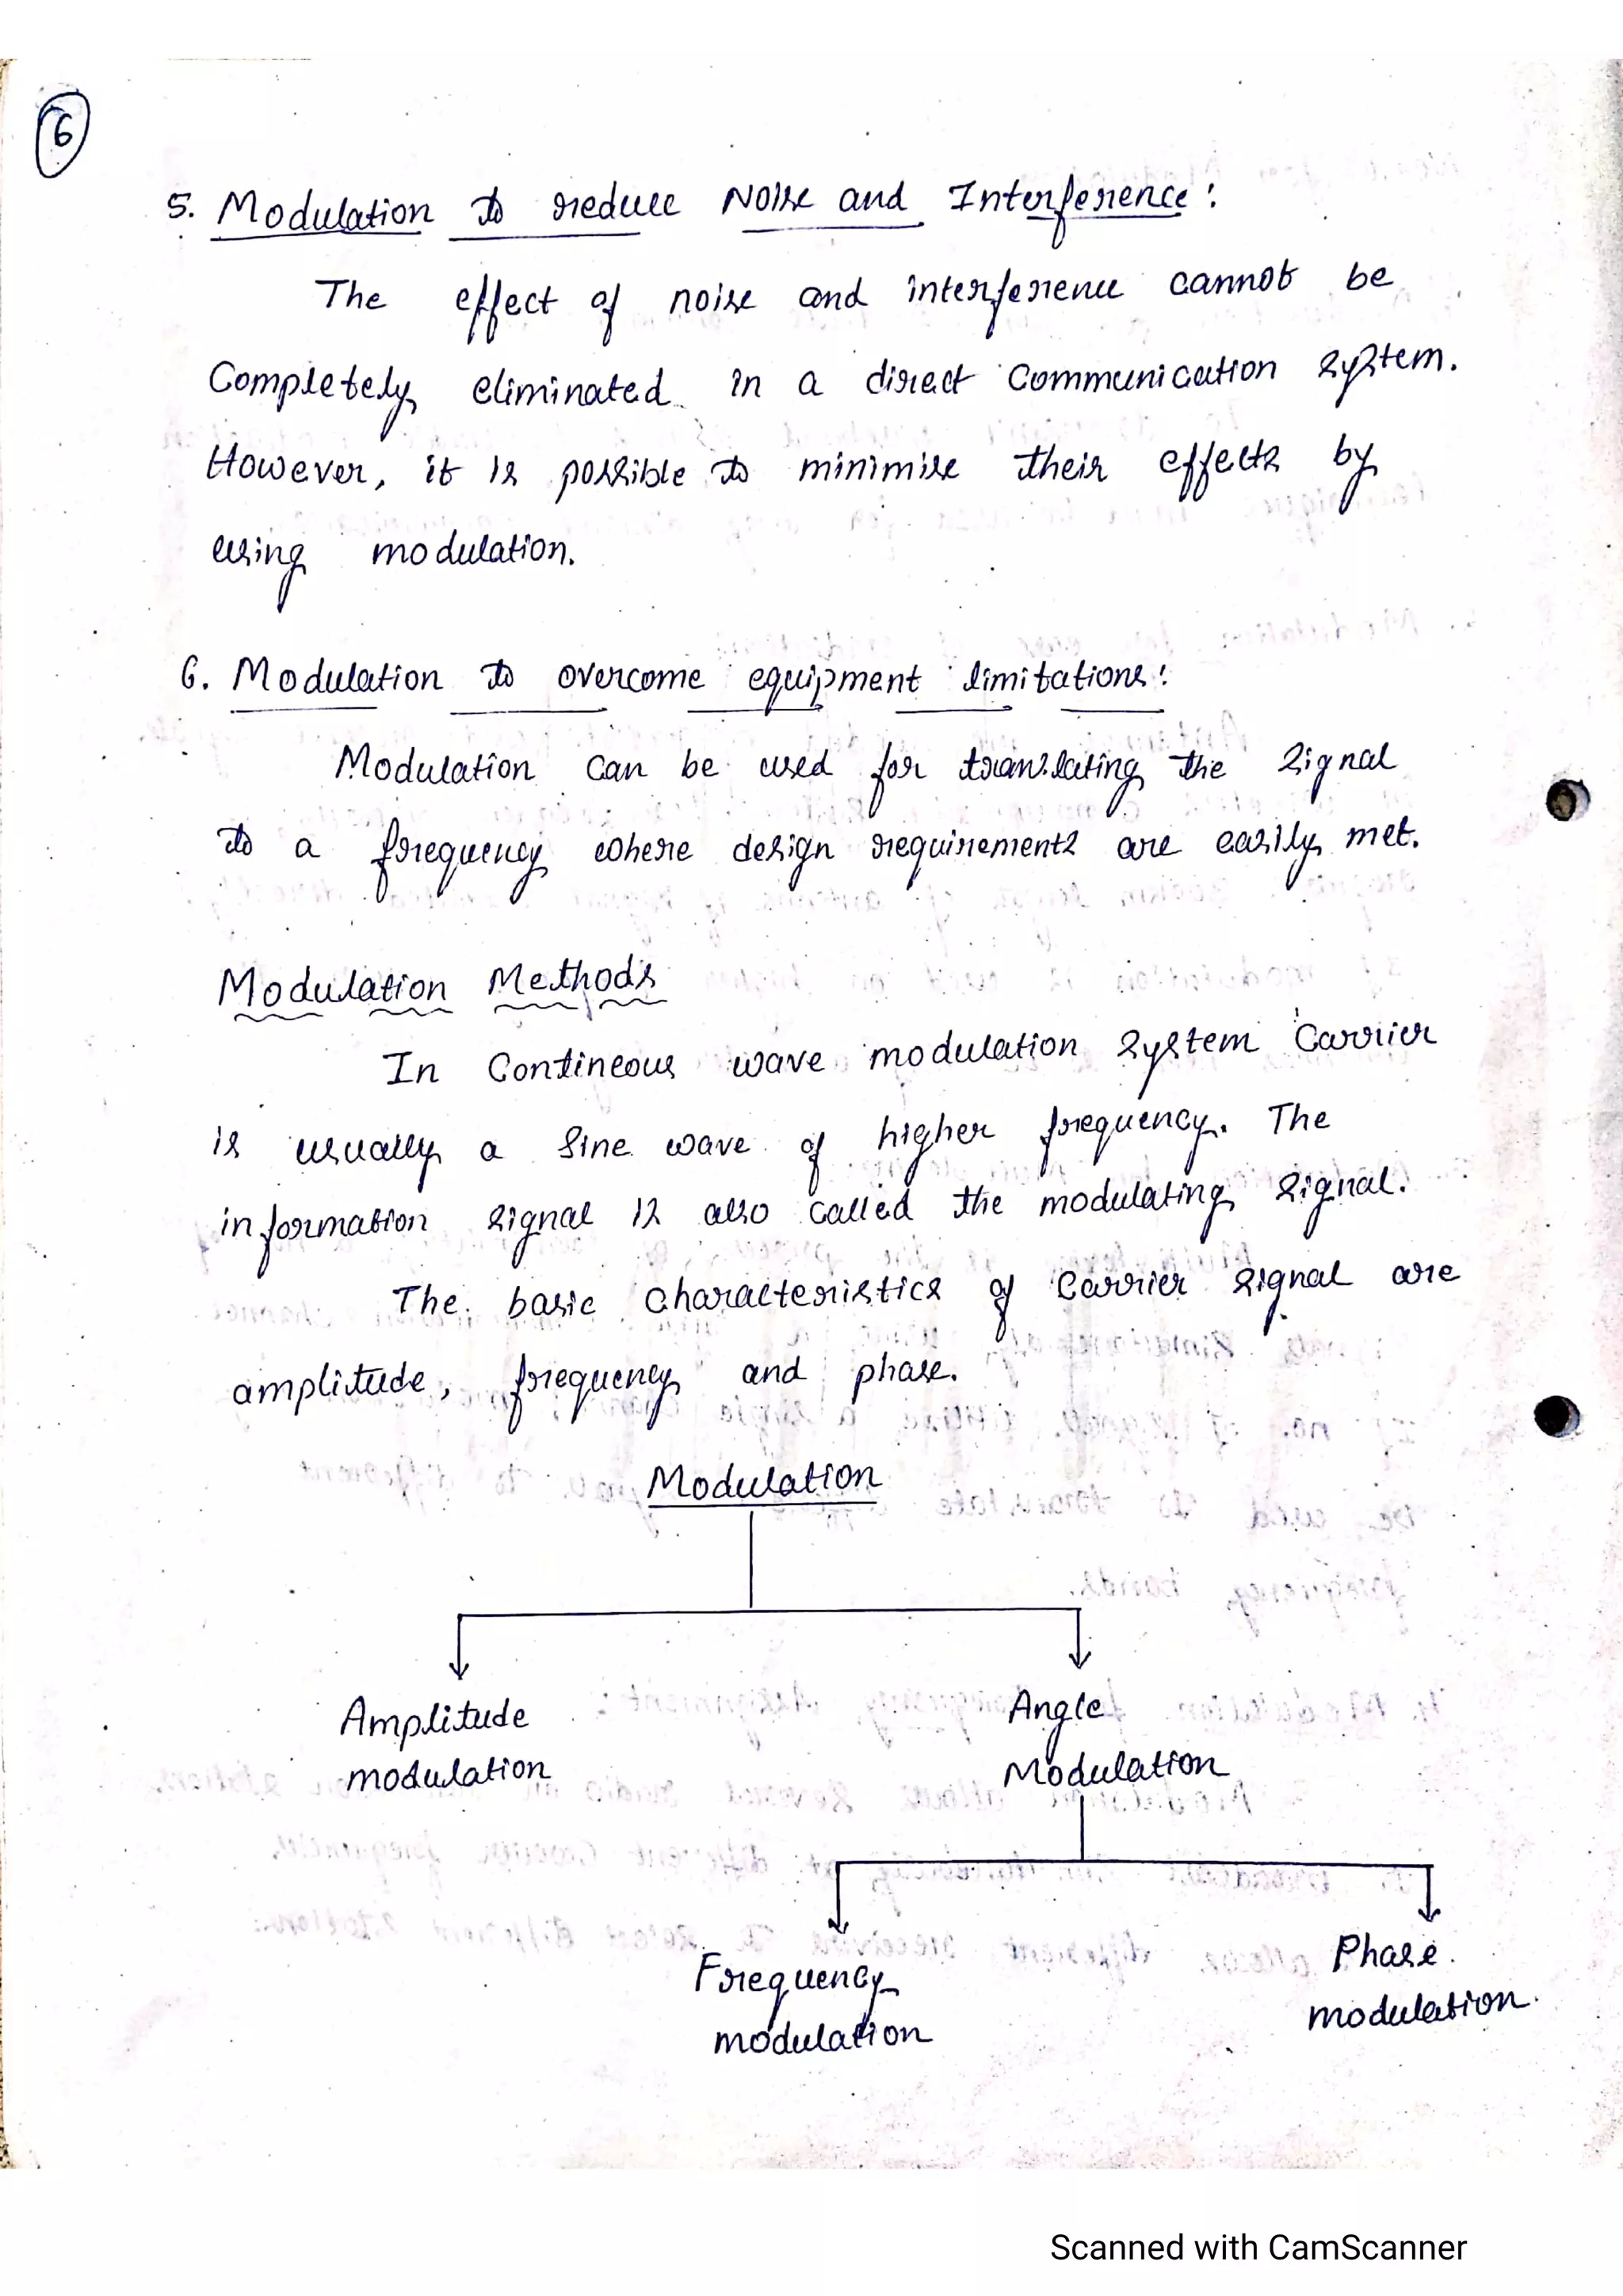 6
5. Modulation to reduce Noise and Interference :
The effect of noise and interference cannot be
Completely eliminated in a direct Communication system.
However, it is possible to minimise their effects by
using modulation.
6. Modulation to overcome equipment limitations :
Modulation can be used for translating the signal
to a frequency where design requirements are easily met.
Modulation Methods
In Contineous wave modulation system Carrier
is usually a sine wave of higher frequency. The
information signal is also called the modulating signal.
The basic characteristics of Carrier signal are
amplitude, frequency and phase.
Modulation
Amplitude
modulation
Angle
Modulation
Frequency
modulation
Phase
modulation.
Scanned with CamScanner